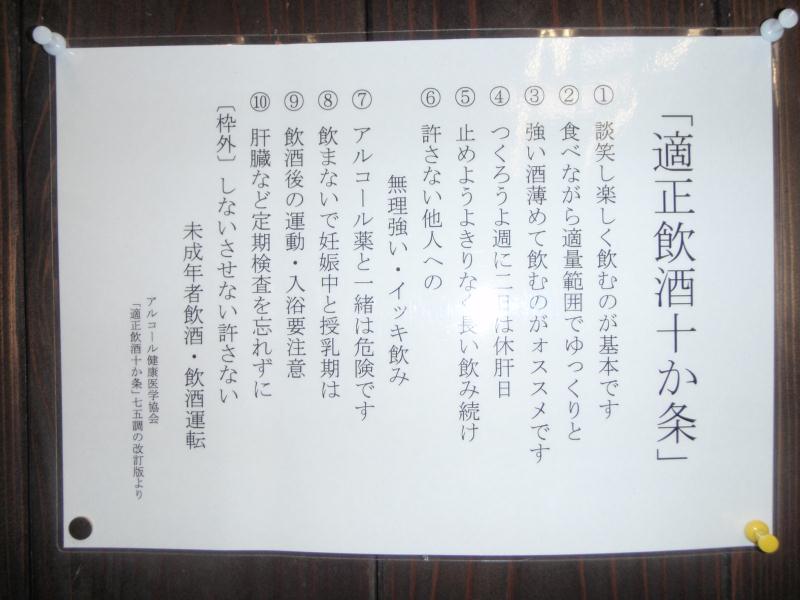 「適正飲酒十か条」
① 談笑し楽しく飲むのが基本です
② 食べながら適量範囲でゆっくりと
③ 強い酒薄めて飲むのがオススメです
④ つくろうよ週に二日は休肝日
⑤ 止めようよきりなく長い飲み続け
⑥ 許さない他人への
無理強い・イッキ飲み
⑦ アルコール薬と一緒は危険です
⑧ 飲まないで妊娠中と授乳期は
⑨ 飲酒後の運動・入浴要注意
⑩ 肝臓など定期検査を忘れずに
〔枠外〕しないさせない許さない
未成年者飲酒・飲酒運転
アルコール健康医学協会
「適正飲酒十か条」七五調の改訂版より